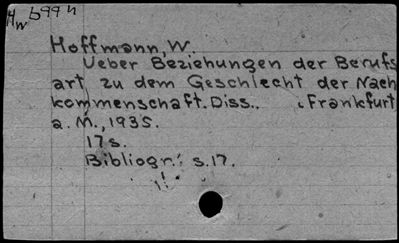 Hw b99n
Hoffmann, W.
Ueber Beziehungen der Berufs
art zu dem Geschlecht der Nach
kommenschaft. Diss.. Frankfurt
a. M., 1935.
17s.
Bibliogr.: s.17.